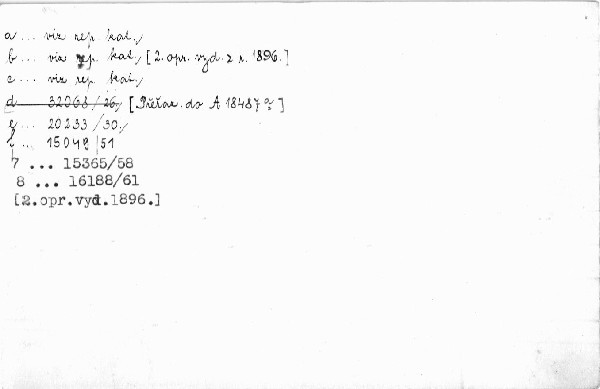 a ... viz rep. kat.,
b ... viz rep. kat., [2. opr. vyd. z r. 1896.]
c ... viz rep. kat.,
d 32068/26, [Přeřaz. do A 18487 ]
e ... 20233/30,
f ... 15049/51
7 ... 15365/58
8 ... 16188/61
[2.opr.vyd.1896.]